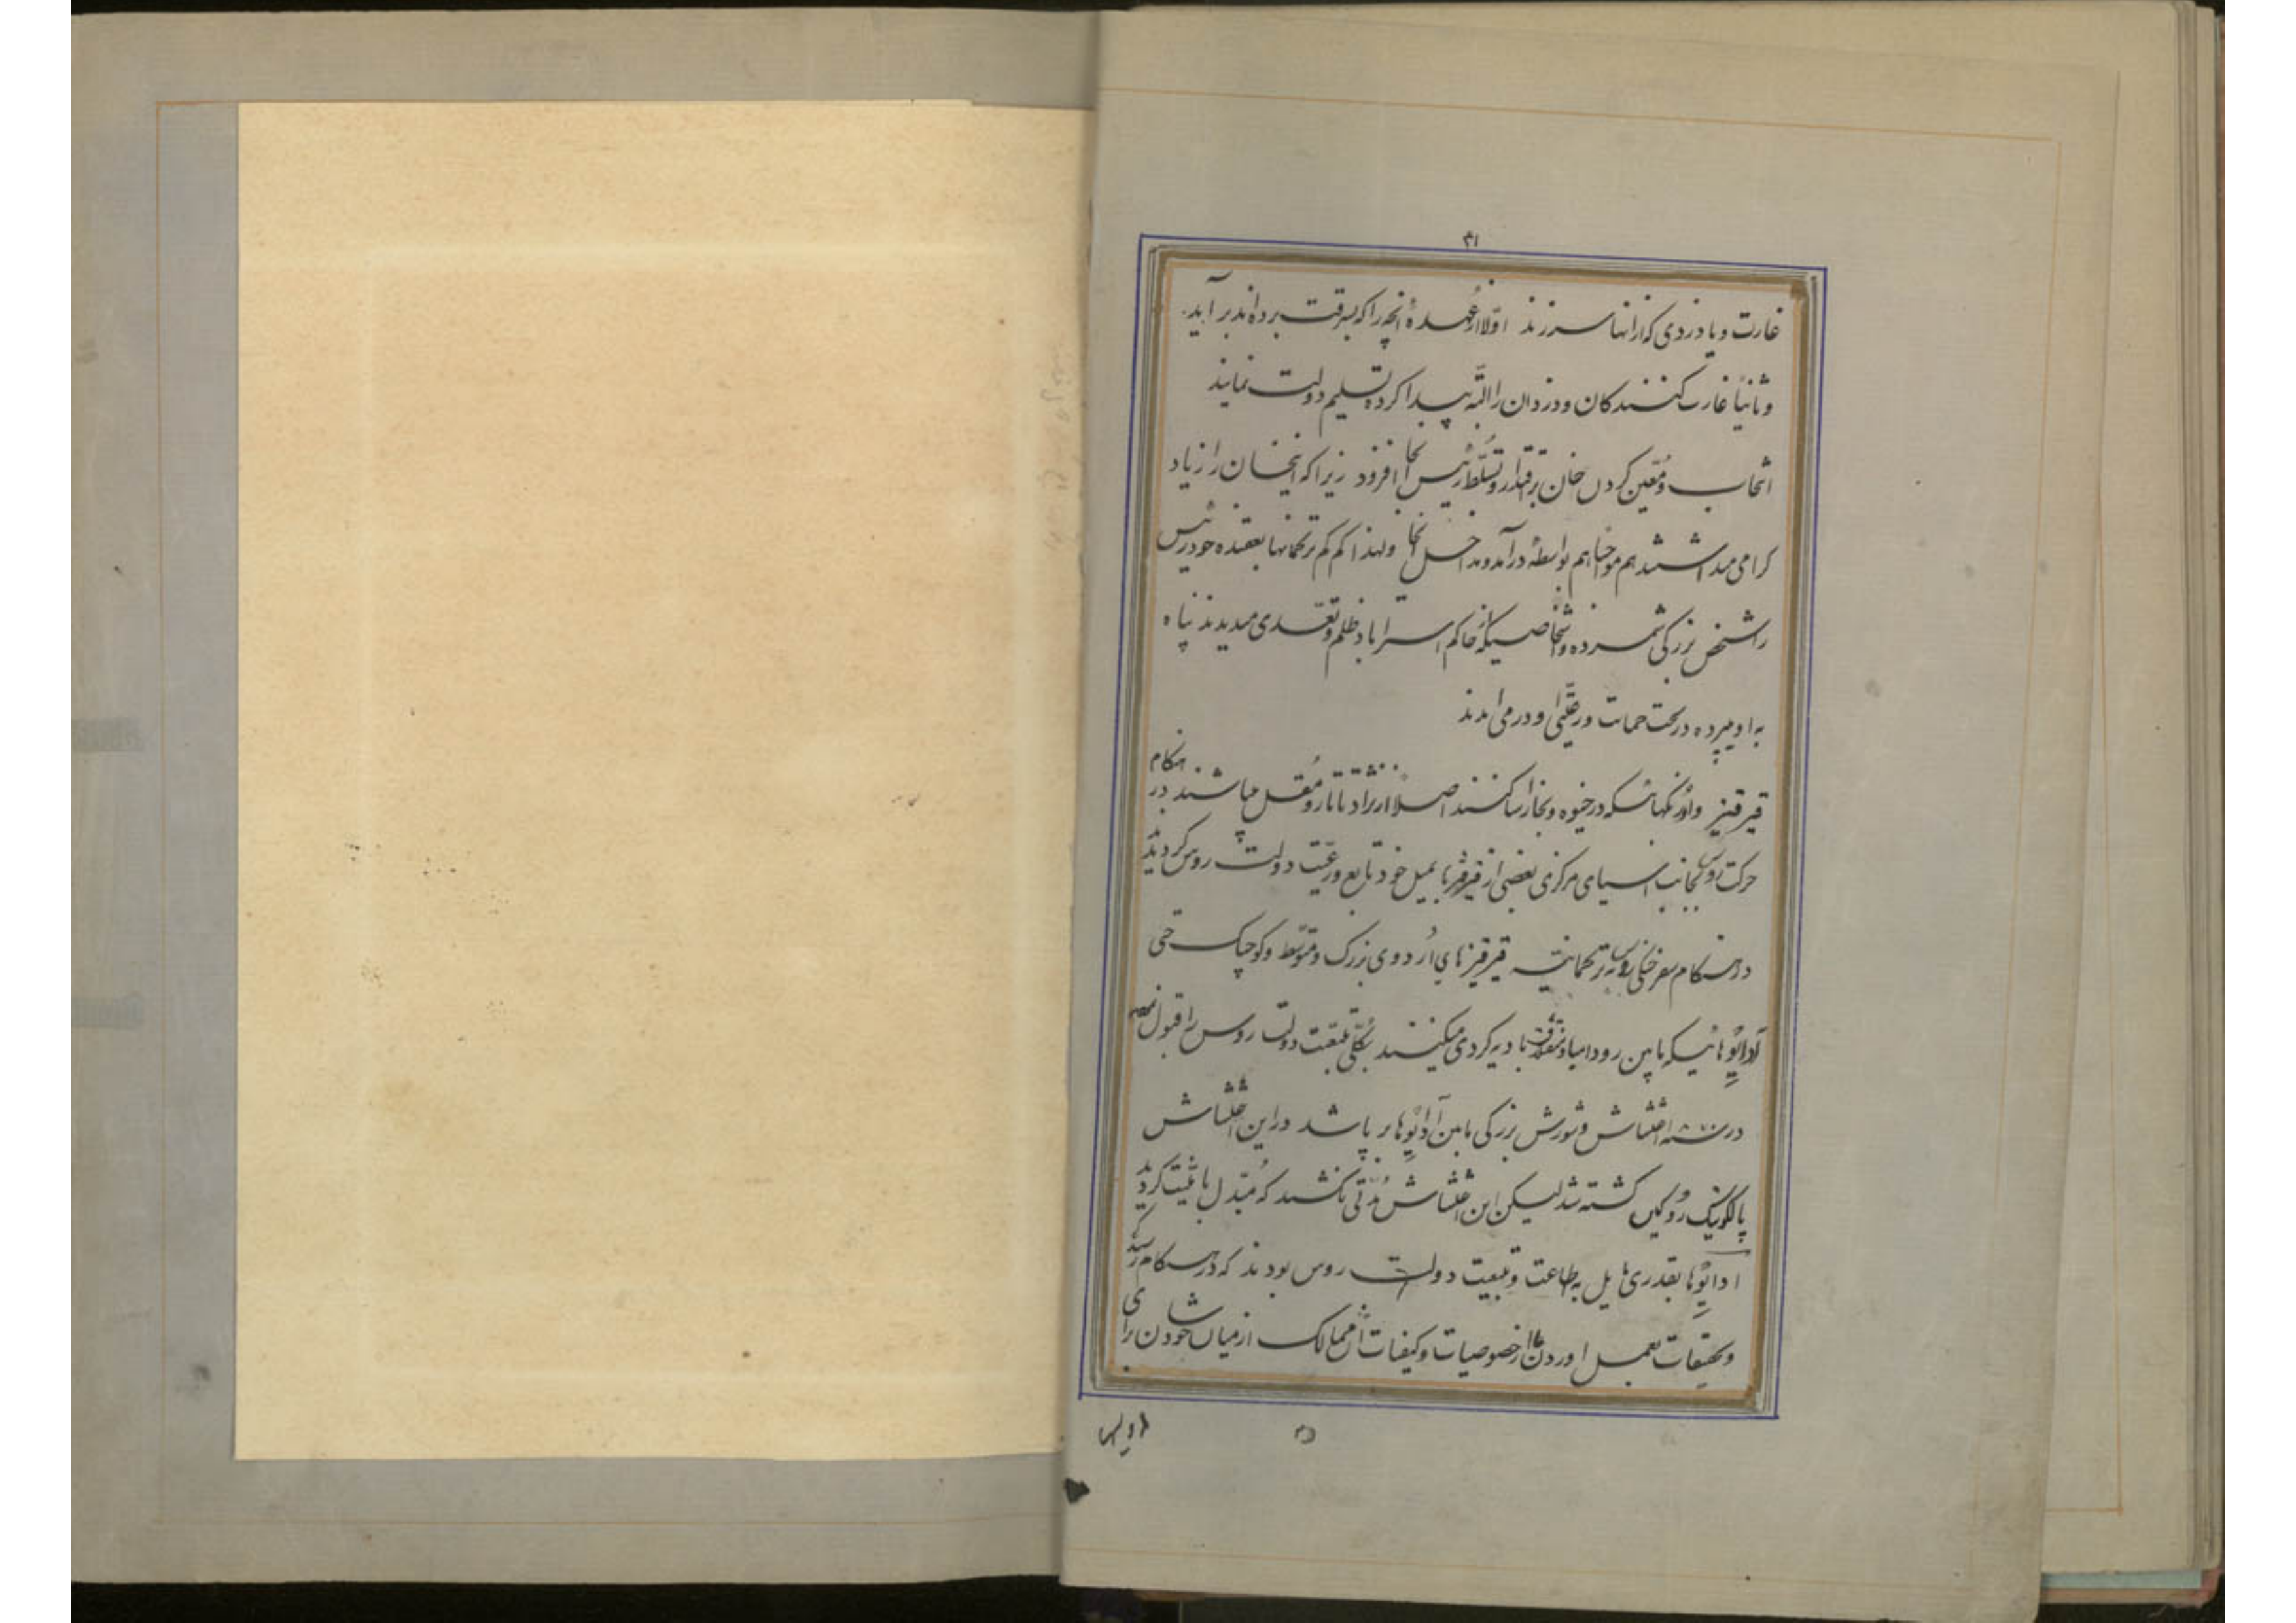 ۳۱
غارت و یا دزدی که از انها سرزند اولا از عهده انچه را که بسرقت برده‌اند بر آیند
و ثانیا غارت کنندکان و دزدان را البته پیدا کرده تسلیم دولت نمایند
انتخاب و معین کردن خان بر اقتدار و تسلط رئیس انجا افزود زیرا که اینخان را زیاد
کرامی میداشتند هم بواسطه در آمد و مداخل انجا و لهذا کم کم ترکمانها بعقیده خود رئیس
را شخص بزرکی شمرده و اشخاصیکه از حاکم استراباد ظلم و تعدی میدیدند پناه
به او میبرده در تحت حمایت و رعیتی او در می امدند
قیرقیز و اوزبکهائیکه در خیوه و بخارا ساکنند اصلا از نژاد تاتار و مغل میباشند در هنکام
حرکت روس بجانب اسیای مرکزی بعضی از قیرقیزها بمیل خود تابع و رعیت دولت روس کردیدند
در هنکام سفر جنکی روس به ترکمانیه قیرقیزهای اردوی بزرک و متوسط و کوچک حتی
آدایوهائیکه مابین رود امبا و منقشلاق بادیه کردی میکنند بکلی تبعیت دولت روس را قبول نموده
در سنه ۱۸۷۰ اغتشاش و شورش بزرکی مابین آدایوها بر پا شد در این اغتشاش
پالکونیک روکین کشته شد لیکن این اغتشاش مدتی نکشید که مبدل بامنیت کردید
ادایوها بقدری مایل به اطاعت و تبعیت دولت روس بودند که در هنکام رسیدکی
و تحقیقات بعمل اوردن ما از خصوصیات و کیفیات آن ممالک از میان خودشان برای